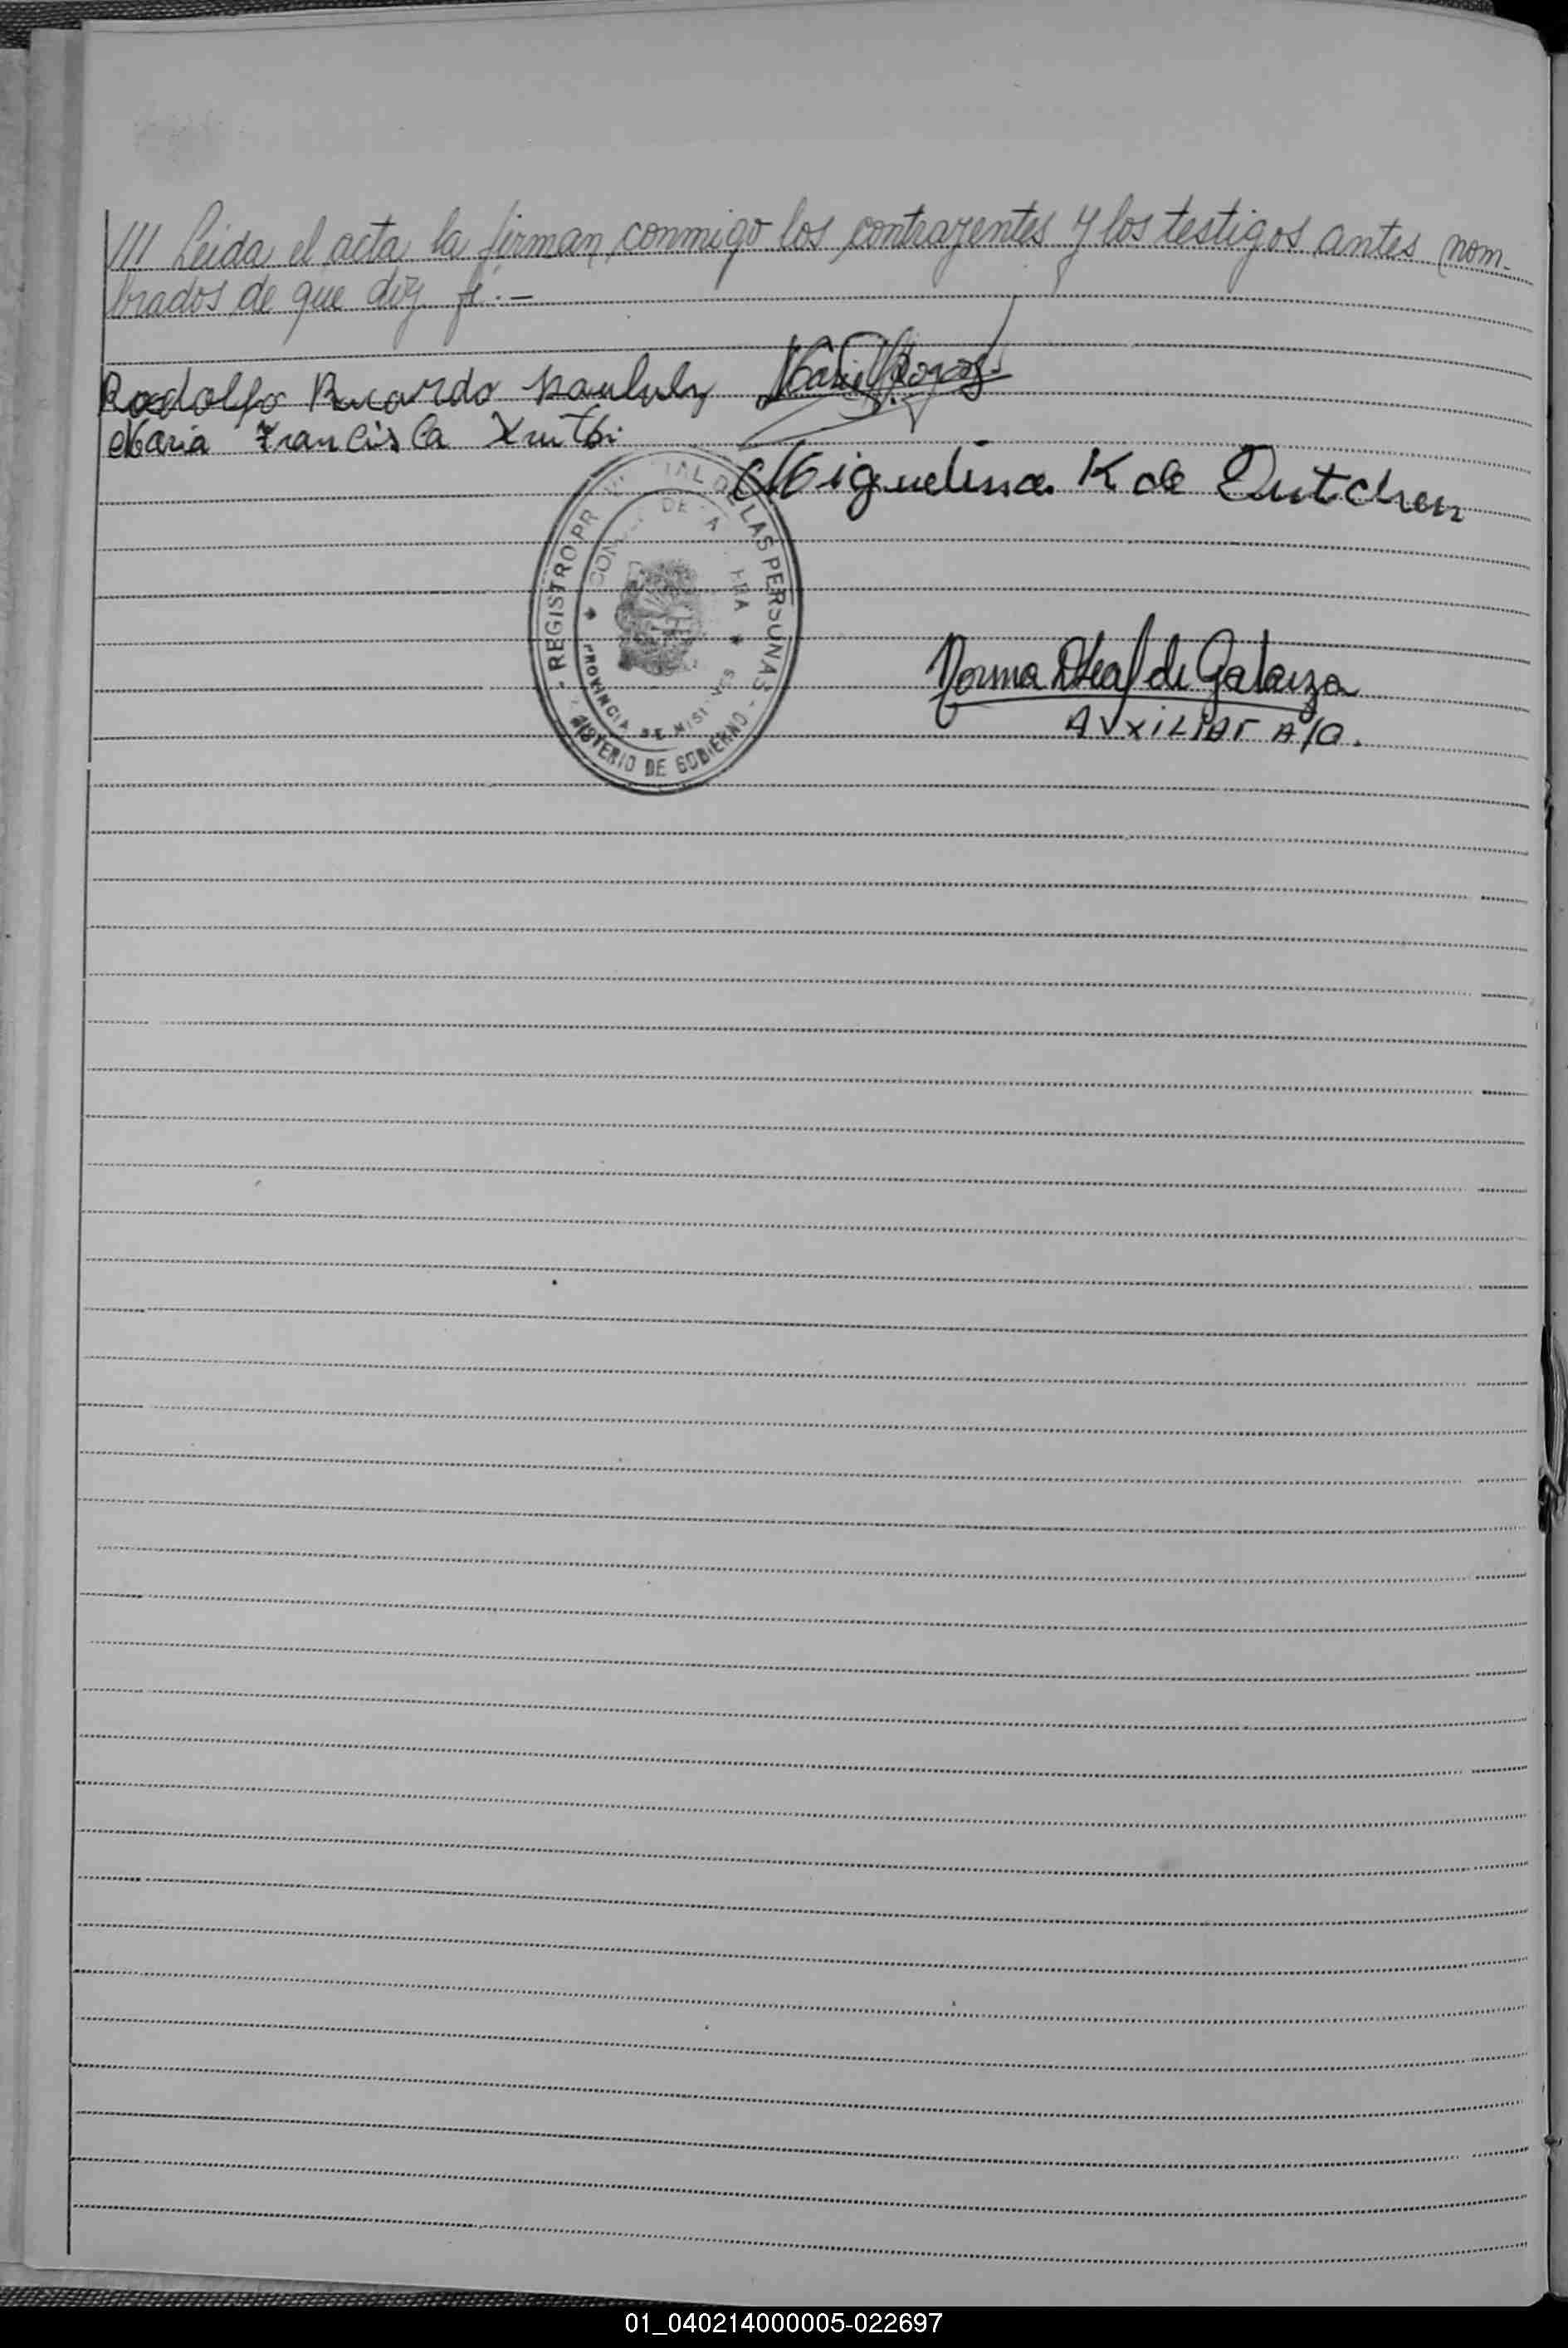 /// Leida el acta la firman conmigo los contrayentes y los testigos antes nom-
brados de que doy fé.-
Rodolfo Ricardo
Maria Francisca
Miguelina K de Dutchen
REGISTRO PROVINCIAL DE LAS PERSONAS
PROVINCIA DE MISIONES
MINISTERIO DE GOBIERNO
Norma de Galarza
AUXILIAR A/O.
01_040214000005-022697